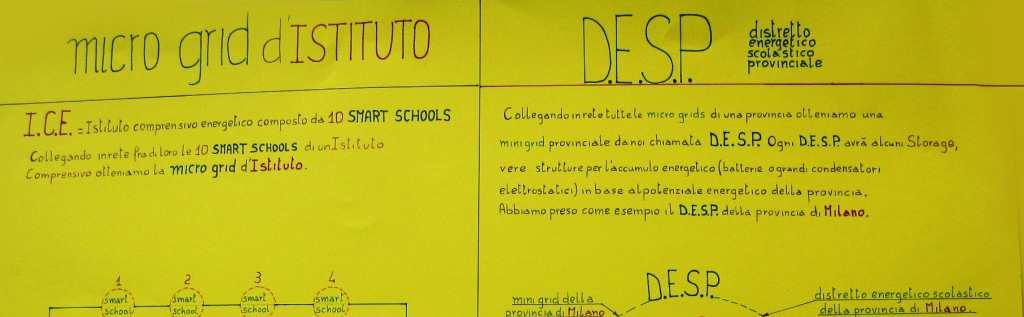 micro grid d'ISTITUTO
I.C.E. = Istituto comprensivo energetico composto da 10 SMART SCHOOLS
Collegando in rete fra di loro le 10 SMART SCHOOLS di un Istituto
Comprensivo otteniamo la micro grid d'Istituto.
1
2
3
4
smart school
smart school
smart school
smart school
D.E.S.P.
distretto
energetico
scolastico
provinciale
Collegando in rete tutte le micro grids di una provincia otteniamo una
mini grid provinciale da noi chiamata D.E.S.P. Ogni D.E.S.P. avrà alcuni Storage,
vere strutture per l'accumulo energetico (batterie o grandi condensatori
elettrostatici) in base al potenziale energetico della provincia.
Abbiamo preso come esempio il D.E.S.P. della provincia di Milano.
D.E.S.P.
mini grid della
provincia di Milano
distretto energetico scolastico
della provincia di Milano.